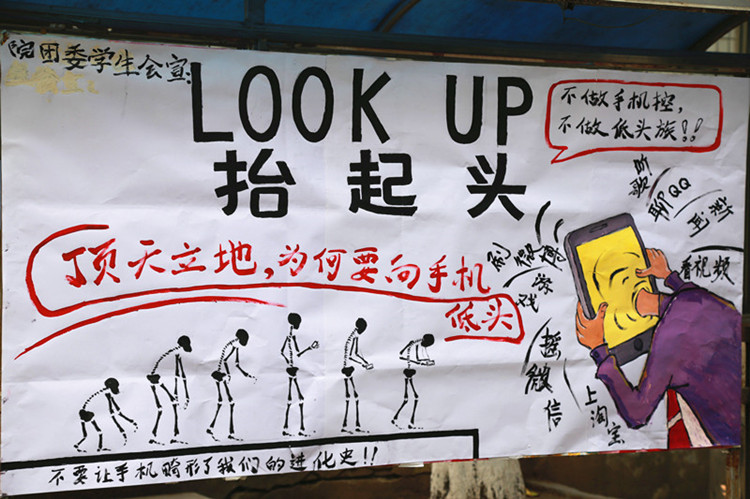 院团委学生会宣
LOOK UP
抬起头
不做手机控，
不做低头族!!
顶天立地，为何要向手机
低头
听歌
聊QQ
新闻
看视频
刷微博
游戏
摇微信
上淘宝
不要让手机畸形了我们的进化史!!